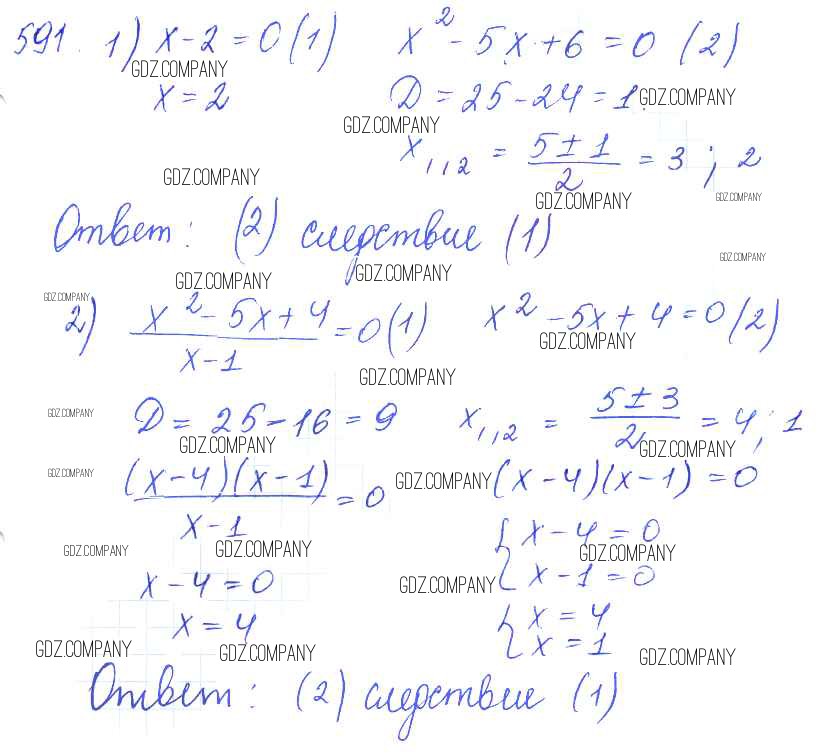 591. 1) x-2=0(1) x²-5x+6=0 (2)
GDZ.COMPANY
x=2 D=25-24=1 GDZ.COMPANY
GDZ.COMPANY
x₁,₂ = (5±1)/2 = 3; 2
GDZ.COMPANY
GDZ.COMPANY GDZ.COMPANY
Ответ: (2) следствие (1)
GDZ.COMPANY
GDZ.COMPANY GDZ.COMPANY
GDZ.COMPANY
2) (x²-5x+4)/(x-1) =0(1) x²-5x+4=0(2)
GDZ.COMPANY
GDZ.COMPANY
GDZ.COMPANY D=25-16=9 x₁,₂ = (5±3)/2 = 4; 1
GDZ.COMPANY GDZ.COMPANY
GDZ.COMPANY ((x-4)(x-1))/(x-1) =0 GDZ.COMPANY (x-4)(x-1)=0
GDZ.COMPANY GDZ.COMPANY { x-4=0
GDZ.COMPANY
x-4=0 GDZ.COMPANY x-1=0
x=4 { x=4
x=1
GDZ.COMPANY GDZ.COMPANY GDZ.COMPANY
Ответ: (2) следствие (1)